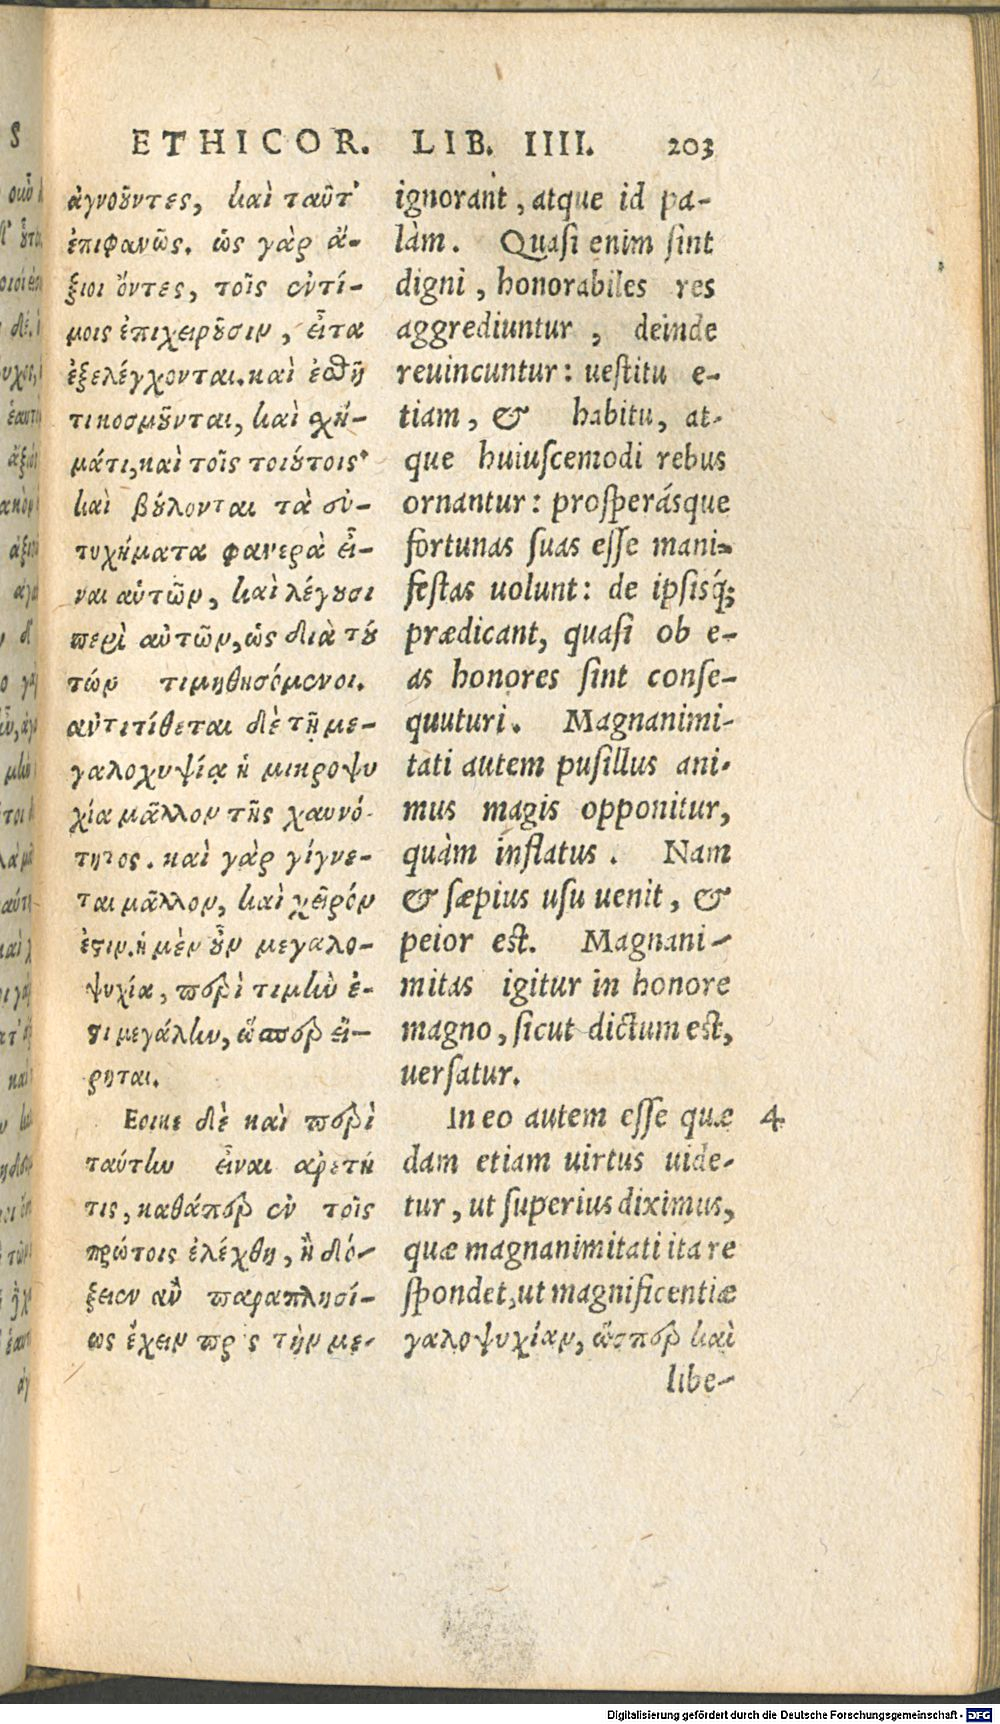 ETHICOR. LIB. IIII. 203
ἀγνοοῦντες, καὶ ταῦτ'
ἐπιφανῶς. ὡς γὰρ ἄ-
ξιοι ὄντες, τοῖς ἐντί-
μοις ἐπιχειροῦσιν, εἶτα
ἐξελέγχονται. καὶ ἐσθῆ
τι κοσμοῦνται, καὶ σχή-
ματι, καὶ τοῖς τοιούτοις·
καὶ βούλονται τὰ εὐ-
τυχήματα φανερὰ εἶ-
ναι αὑτῶν, καὶ λέγουσι
περὶ αὐτῶν, ὡς διὰ τού
των τιμηθησόμενοι.
ἀντιτίθεται δὲ τῇ με-
γαλοχυψίᾳ ἡ μικροψυ
χία μᾶλλον τῆς χαυνό-
τητος. καὶ γὰρ γίγνε-
ται μᾶλλον, καὶ χεῖρόν
ἐστιν. ἡ μὲν οὖν μεγαλο-
ψυχία, περὶ τιμὴν ἐ-
στι μεγάλην, ὥσπερ εἴ-
ρηται.
Εοικε δὲ καὶ περὶ
ταύτην εἶναι ἀρετή
τις, καθάπερ ἐν τοῖς
πρώτοις ἐλέχθη, ἣ δό-
ξειεν ἂν παραπλησί-
ως ἔχειν πρὸς τὴν με-
ignorant, atque id pa-
làm. Quasi enim sint
digni, honorabiles res
aggrediuntur, deinde
reuincuntur: uestitu e-
tiam, & habitu, at-
que huiuscemodi rebus
ornantur: prosperásque
fortunas suas esse mani-
festas uolunt: de ipsisq́;
prædicant, quasi ob e-
as honores sint conse-
quuturi. Magnanimi-
tati autem pusillus ani-
mus magis opponitur,
quàm inflatus. Nam
& sæpius usu uenit, &
peior est. Magnani-
mitas igitur in honore
magno, sicut dictum est,
uersatur.
In eo autem esse quæ 4
dam etiam uirtus uide-
tur, ut superius diximus,
quæ magnanimitati ita re
spondet, ut magnificentiæ
γαλοψυχίαν, ὥσπερ καὶ
libe-
Digitalisierung gefördert durch die Deutsche Forschungsgemeinschaft - DFG